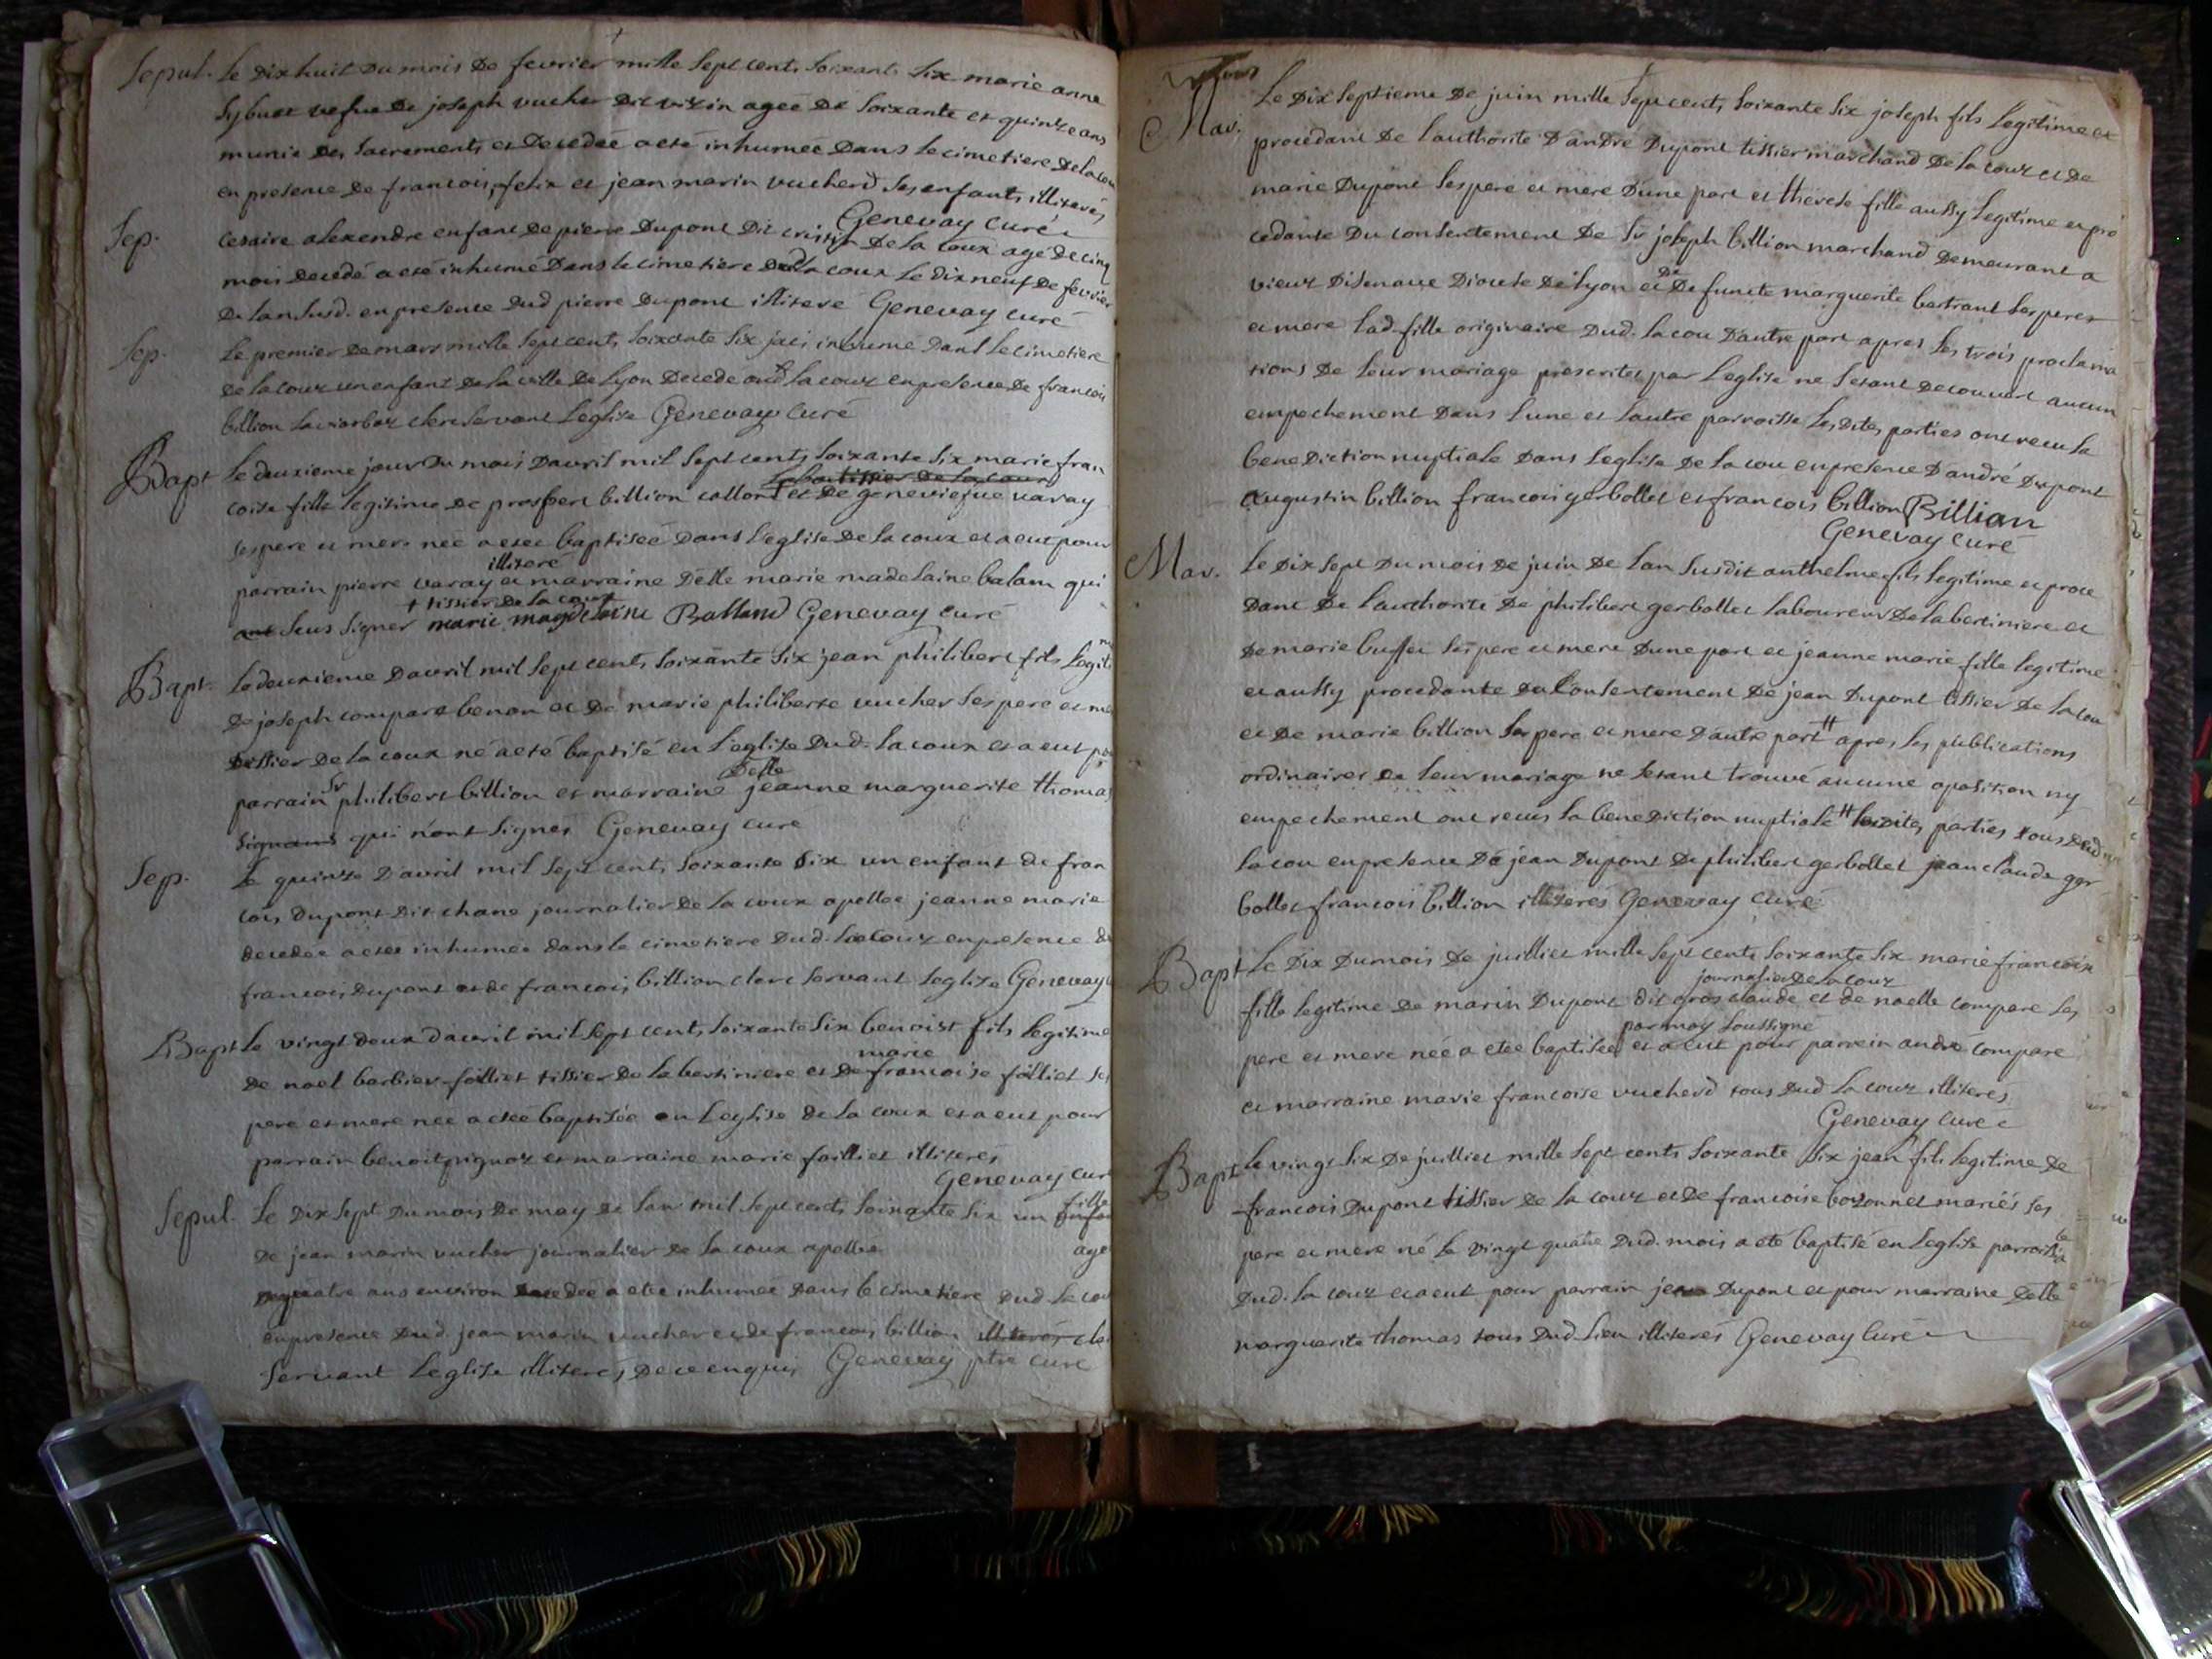 Sepul. Le dixhuit du mois de fevrier mille sept cents soixante six marie anne
vefue de joseph vucher dit agée de soixante et quinze ans
munie des sacrements et decedée a eté inhumée dans le cimetiere de la cou
en presence de francois, felix et jean marin vucherd ses enfants illiterés
Genevay curé
Sep. cesaire alexendre enfant de pierre Dupont dit de la coux agé de cinq
mois decedé a eté inhumé dans le cimetiere dud la coux le dix neuf de fevrier
de lan susd. en presence dud pierre dupont illiteré Genevay curé
Sep. Le premier de mars mille sept cents soixante six jai inhumé dans le cimetiere
de la couz un enfant de la ville de lyon decede aud la couz en presence de francois
billion clerc servant leglise Genevay Curé
Bapt Le deuxieme jour du mois davril mil sept cents soixante six marie fran
coise fille legitime de prospere billion collon et de geneviefue varay
ses pere et mere née a etee baptisée dans l'eglise de la coux et a eut pour
illiteré
parrain pierre varay et marraine delle marie madelaine balam qui
+ tissier de la coux
ant seus signer marie magdelaine Balland Genevay curé
Bapt. Le deuxieme davril mil sept cents soixante six jean philibert fils legiti
de joseph compare benon et de marie philiberte vucher ses pere et me
tissier de la coux né a eté baptisé en l'eglise dud. la coux et a eut po
delle
parrain Sr philibert billion et marraine jeanne marguerite thomas
signants qui n'ont signés Genevay cure
Sep. Le quinze d'avril mil sept cents soixante six un enfant de fran
cois Dupont dit chane journalier de la coux apellee jeanne marie
decedée a etee inhumée dans le cimetiere dud. la couz en presence de
francois dupont et de francois billion clerc servant leglize Genevay
Bapt Le vingt deux davril mil sept cents soixante six benoist fils legitime
marie
de noel barbier folliet tissier de la bertiniere et de francoise folliet ses
pere et mere née a etée baptisée en l'eglise de la coux et a eut pour
parrain benoit et marraine marie folliet illiterés
Genevay curé
Sepul. Le dix sept du mois de may de lan mil sept cents soixante six un enfan
fille
de jean marin vucher journalier de la coux apellée agé
de quatre ans environ decedée a etee inhumée dans le cimetiere dud la cou
en presence dud. jean marin vucher et de francois billion illiterés cle
servant leglise illiterés de ce enquis Genevay ptre curé
Mar. Le dix septieme de juin mille sept cents soixante six joseph fils legitime et
procedant de l'authorité dandré Dupont tissier marchand de la couz et de
marie Dupont ses pere et mere dune part et therese fille aussy legitime et pro
cedante du consentement de Sr joseph billion marchand demeurant a
vieux diocese de lyon et de functe marguerite bertrand ses pere
et mere lad. fille originaire dud. la cou dautre part apres les trois proclama
tions de leur mariage prescrites par leglise ne setant decouvert aucun
empechement dans lune et lautre parroisse lesdites parties ont recu la
benediction nuptiale dans leglise de la cou en presence dandré dupont
augustin billion francois gerbollet et francois billion Billian
Genevay curé
Mar. Le dix sept du mois de juin de lan susdit anthelme fils legitime et proce
dant de l'authorité de philibert gerbollet laboureur de la bertiniere et
de marie buffet ses pere et mere dune part et jeanne marie fille legitime
et aussy procedante du consentement de jean Dupont tissier de la cou
et de marie billion ses pere et mere dautre part # apres les publications
ordinaires de leur mariage ne setant trouvé aucune oposition ny
empechement ont recus la benediction nuptiale # lesdites parties tous dud
la cou en presence de jean Dupont de philibert gerbollet jean claude ger
bollet francois billion illiterés Genevay Curé
Bapt Le dix du mois de juilliet mille sept cents soixante six marie francoise
journalier de la couz
fille legitime de marin Dupont dit gros claude et de noelle compare ses
par moy soussigné
pere et mere née a etee baptisée et a eut pour parrein andre compare
et marraine marie francoise vucherd tous dud la couz illiterés
Genevay curé
Bapt Le vingt six de juilliet mille sept cents soixante six jean fils legitime de
francois Dupont tissier de la couz et de francoise bozonnet mariés ses
pere et mere né le vingt quatre dud. mois a eté baptisé en leglise parroissia
le
dud. la couz et a eut pour parrain jean Dupont et pour marraine delle
marguerite thomas tous dud lieu illiterés Genevay Curé